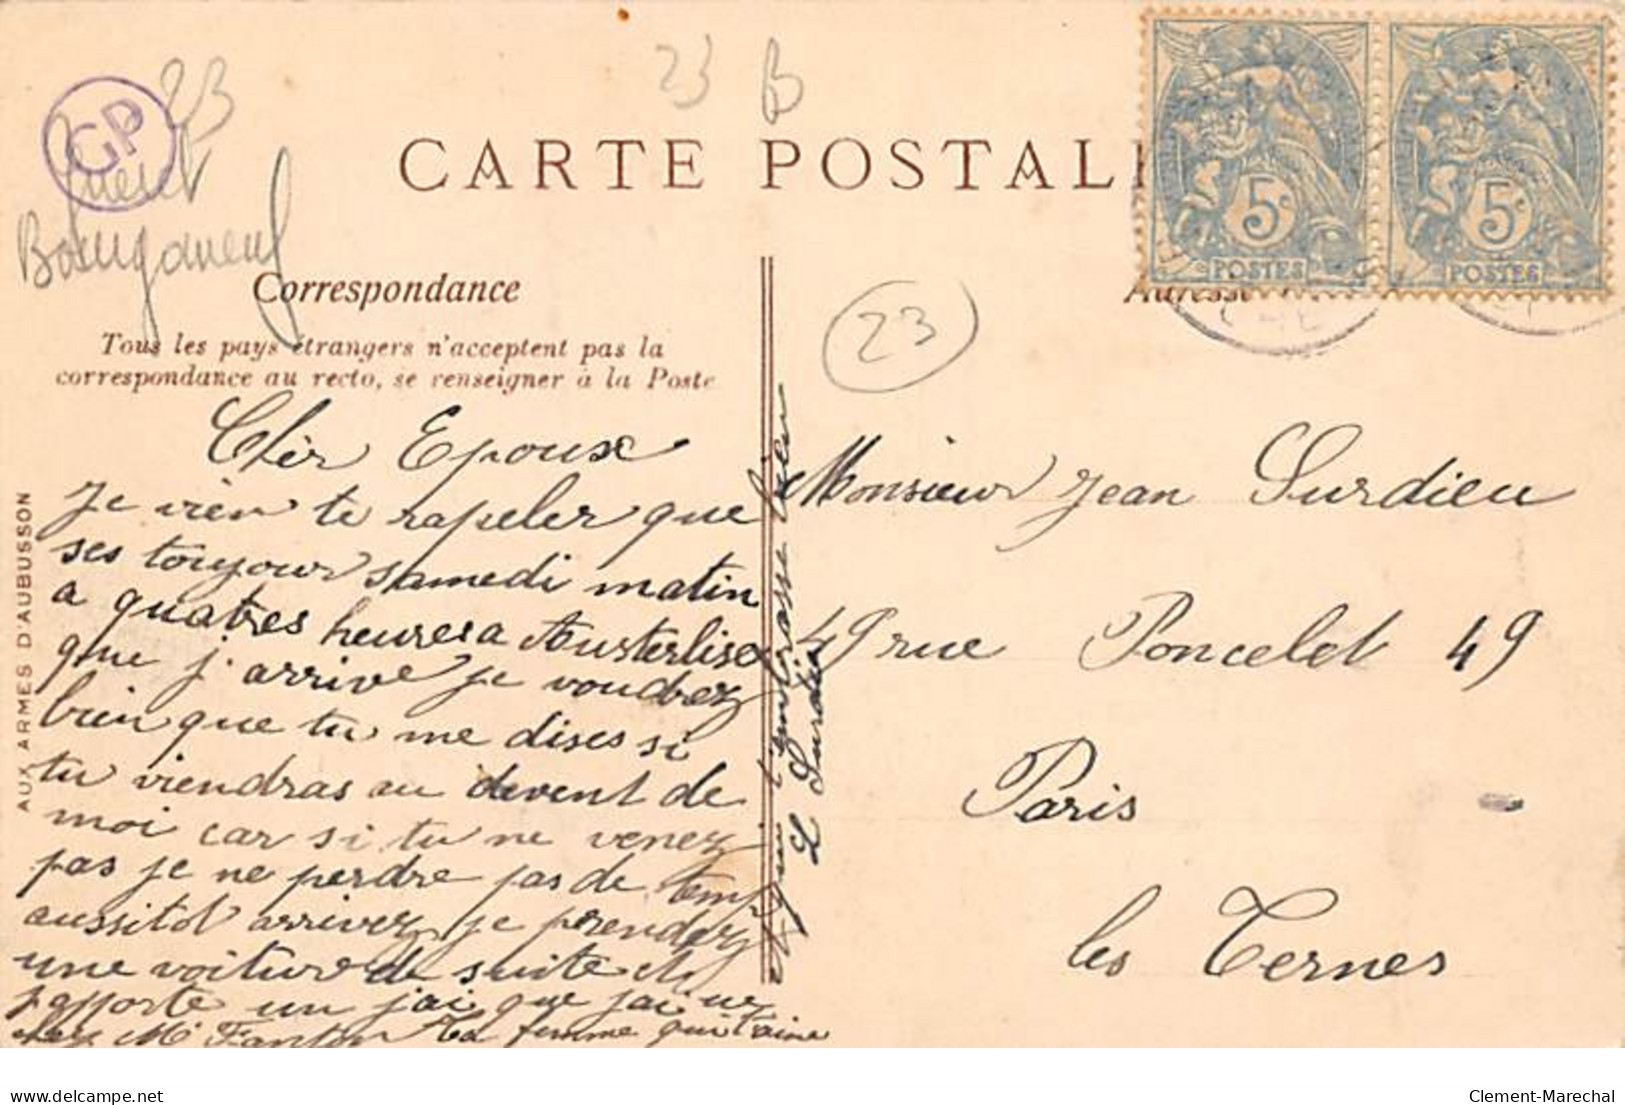 23
23 B
GP
Bourganeuf
CARTE POSTALE
5c
POSTES
5c
POSTES
Correspondance
Tous les pays étrangers n'acceptent pas la
correspondance au recto, se renseigner à la Poste
23
Chèr Epoux
Je vien te rapeler que
ses toujour samedi matin
a quatres heures a Austerlise
que j'arrive je voudrez
bien que tu me dises si
tu viendras au devent de
moi car si tu ne venez
pas je ne perdre pas de temp
aussitot arrivez je prendez
une voiture de suite et
j'apporte un jai que j'ai
chez Mr Ta femme qui t'aime
et qui t'embrasse bien
L Surdieu
Monsieur Jean Surdieu
49 rue Poncelet 49
Paris
les Ternes
AUX ARMES D'AUBUSSON
Clement-Marechal